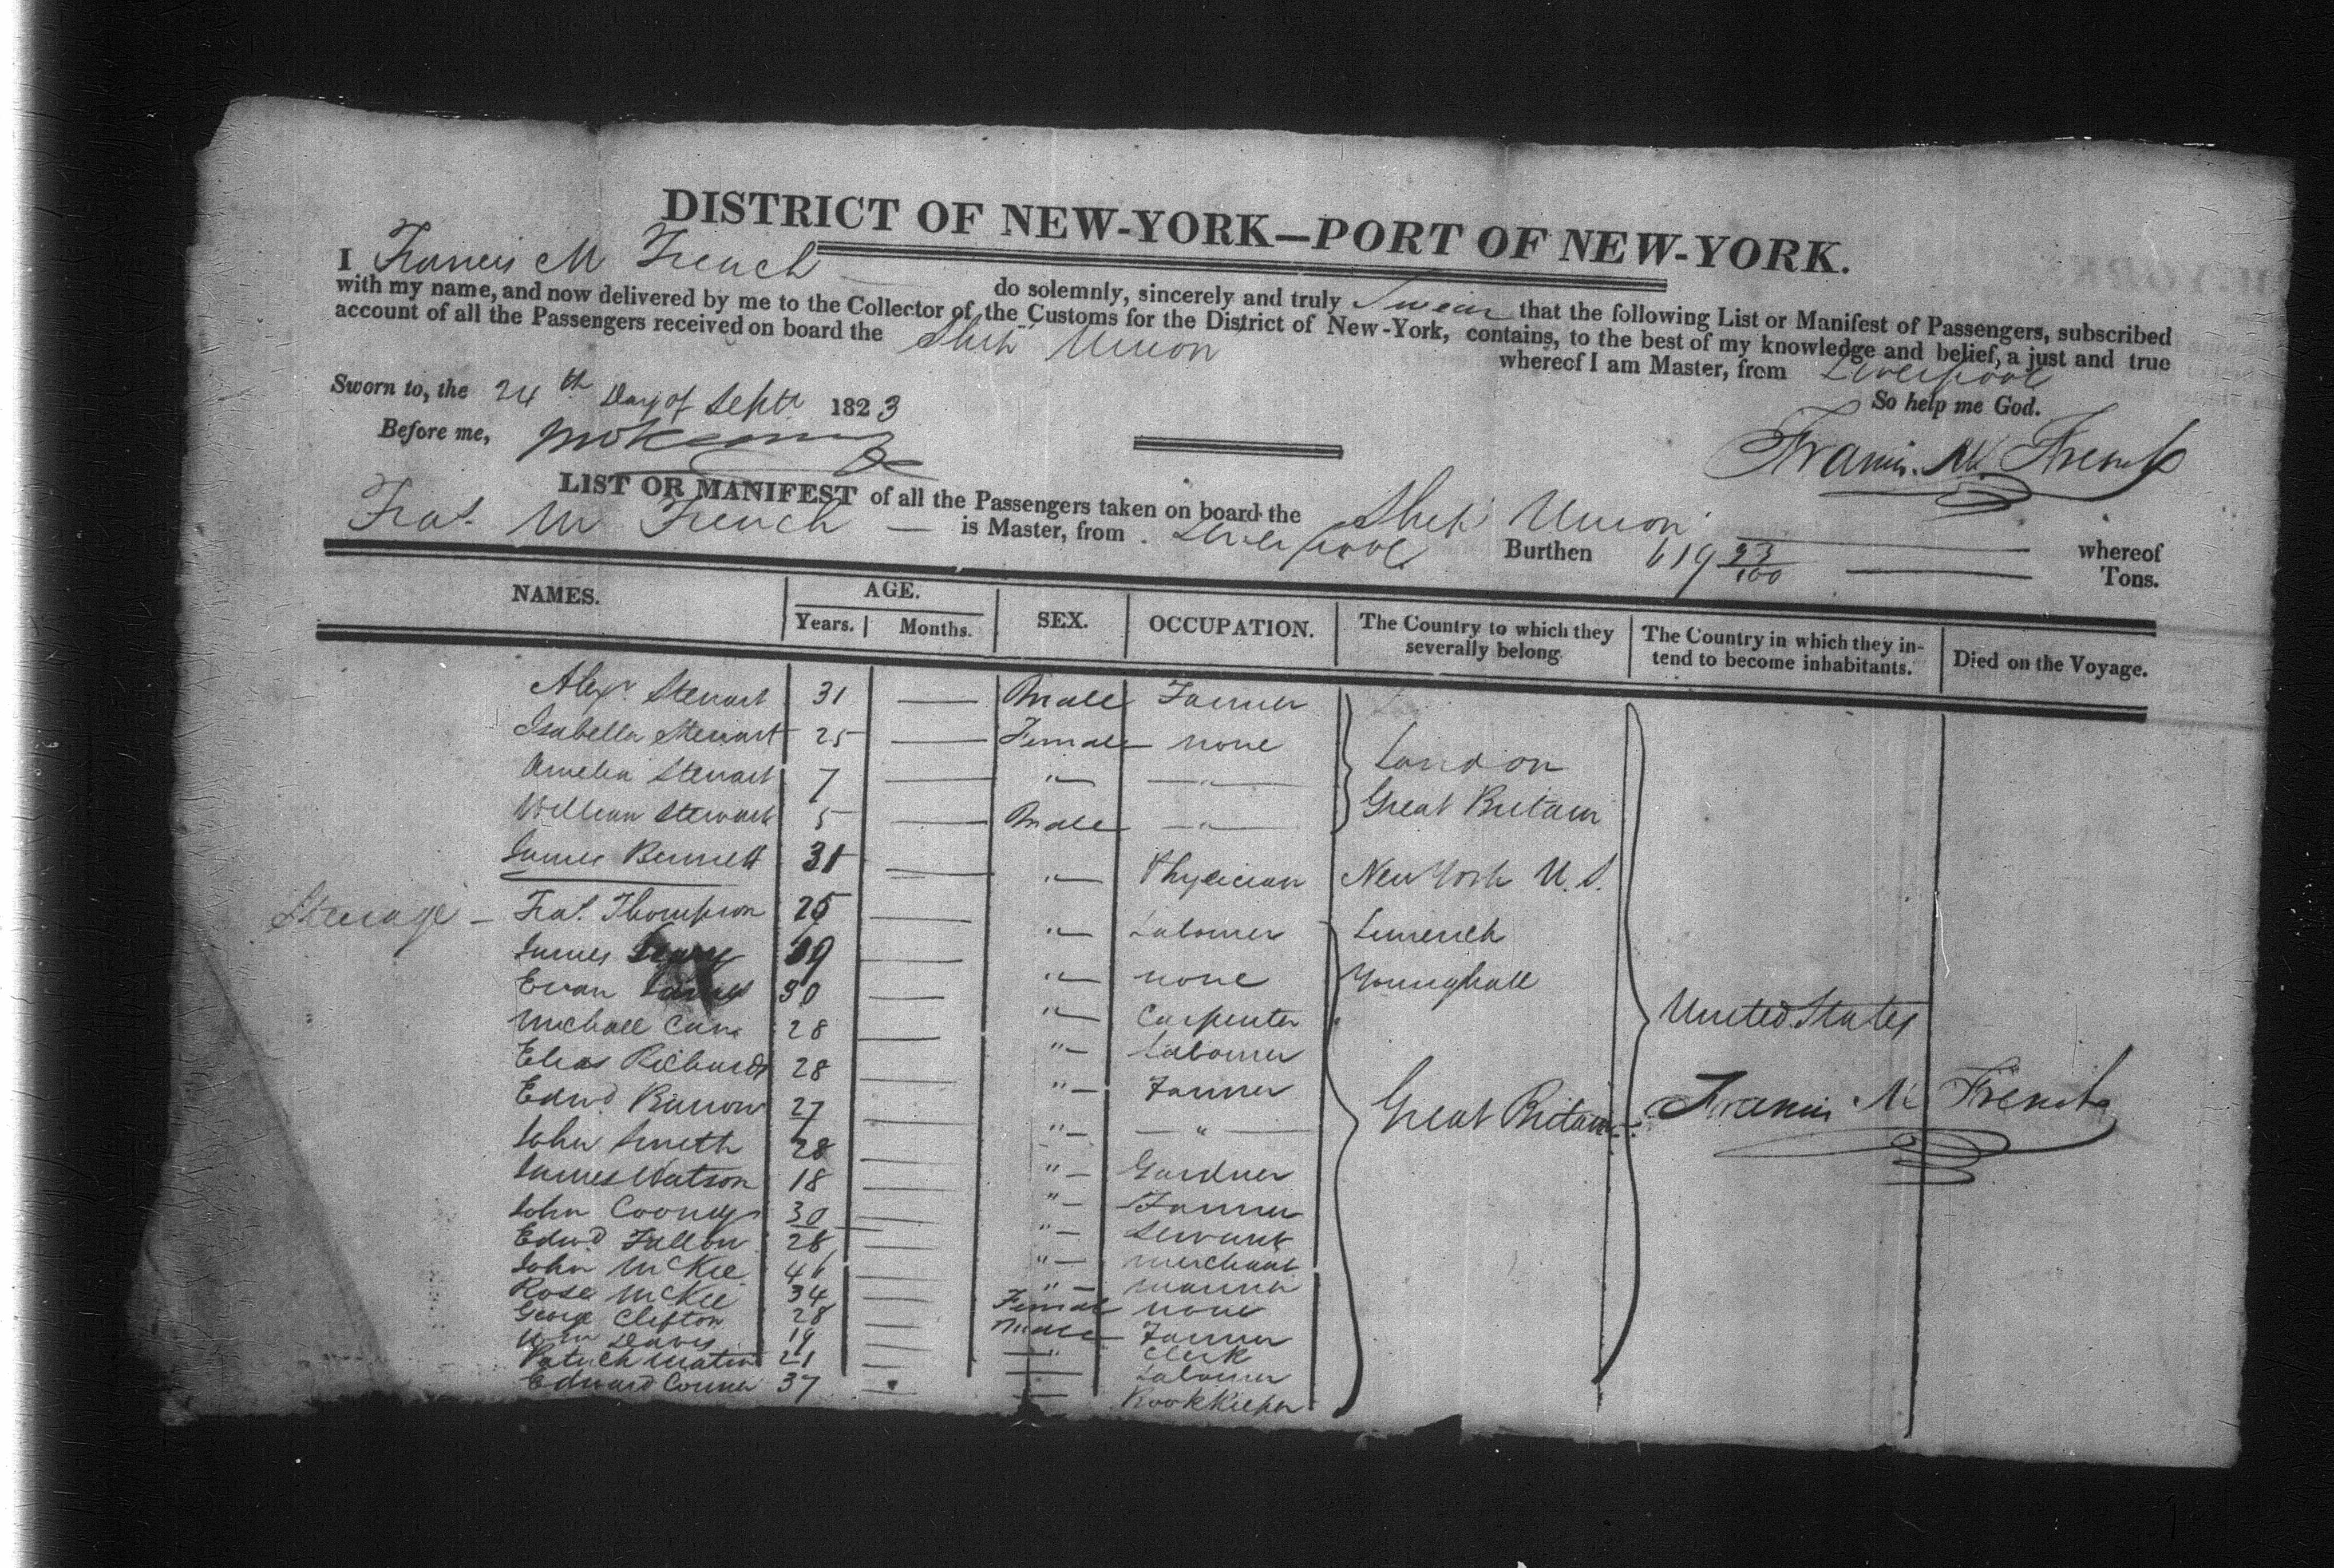 DISTRICT OF NEW-YORK—PORT OF NEW-YORK.
I Francis M French do solemnly, sincerely and truly Swear that the following List or Manifest of Passengers, subscribed
with my name, and now delivered by me to the Collector of the Customs for the District of New-York, contains, to the best of my knowledge and belief, a just and true
account of all the Passengers received on board the Ship Union whereof I am Master, from Liverpool
Sworn to, the 24th Day of Septr 1823
So help me God.
Before me,
Francis M French
LIST OR MANIFEST of all the Passengers taken on board the Ship Union whereof
Fras. M French is Master, from Liverpool Burthen 619 23/100 Tons.
NAMES. AGE. SEX. OCCUPATION. The Country to which they severally belong. The Country in which they intend to become inhabitants. Died on the Voyage.
Years. Months.
Alexr. Stewart 31 — Male Farmer
Isabella Stewart 25 — Female none
Amelia Stewart 7 — " — " —
William Stewart 5 — Male — " —
London
Great Britain
James Bennett 31 — " — Physician New York U.S.
Steerage — Fras. Thompson 25 — " — Labourer Limerick
James 19 — " — none Younghall
Evan 30 — " — Carpenter
Michael 28 — " — Labourer
Elias Richards 28 — " — Farmer
Edwd. Barrow 27 — " — " —
John Smith 28 — " — Gardner
James Watson 18 — " — Farmer
John Cooney 30 — " — Servant
Edwd. Fallon 28 — " — merchant
John McKee 46 — " — mariner
Rose McKee 34 — Female none
George Clifton 28 — Male Farmer
Wm Davis 19 — " — Clerk
Patrick Martin 21 — — Labourer
Edward Conner 37 — — Bookkeeper
Great Britain
United States
Francis M French